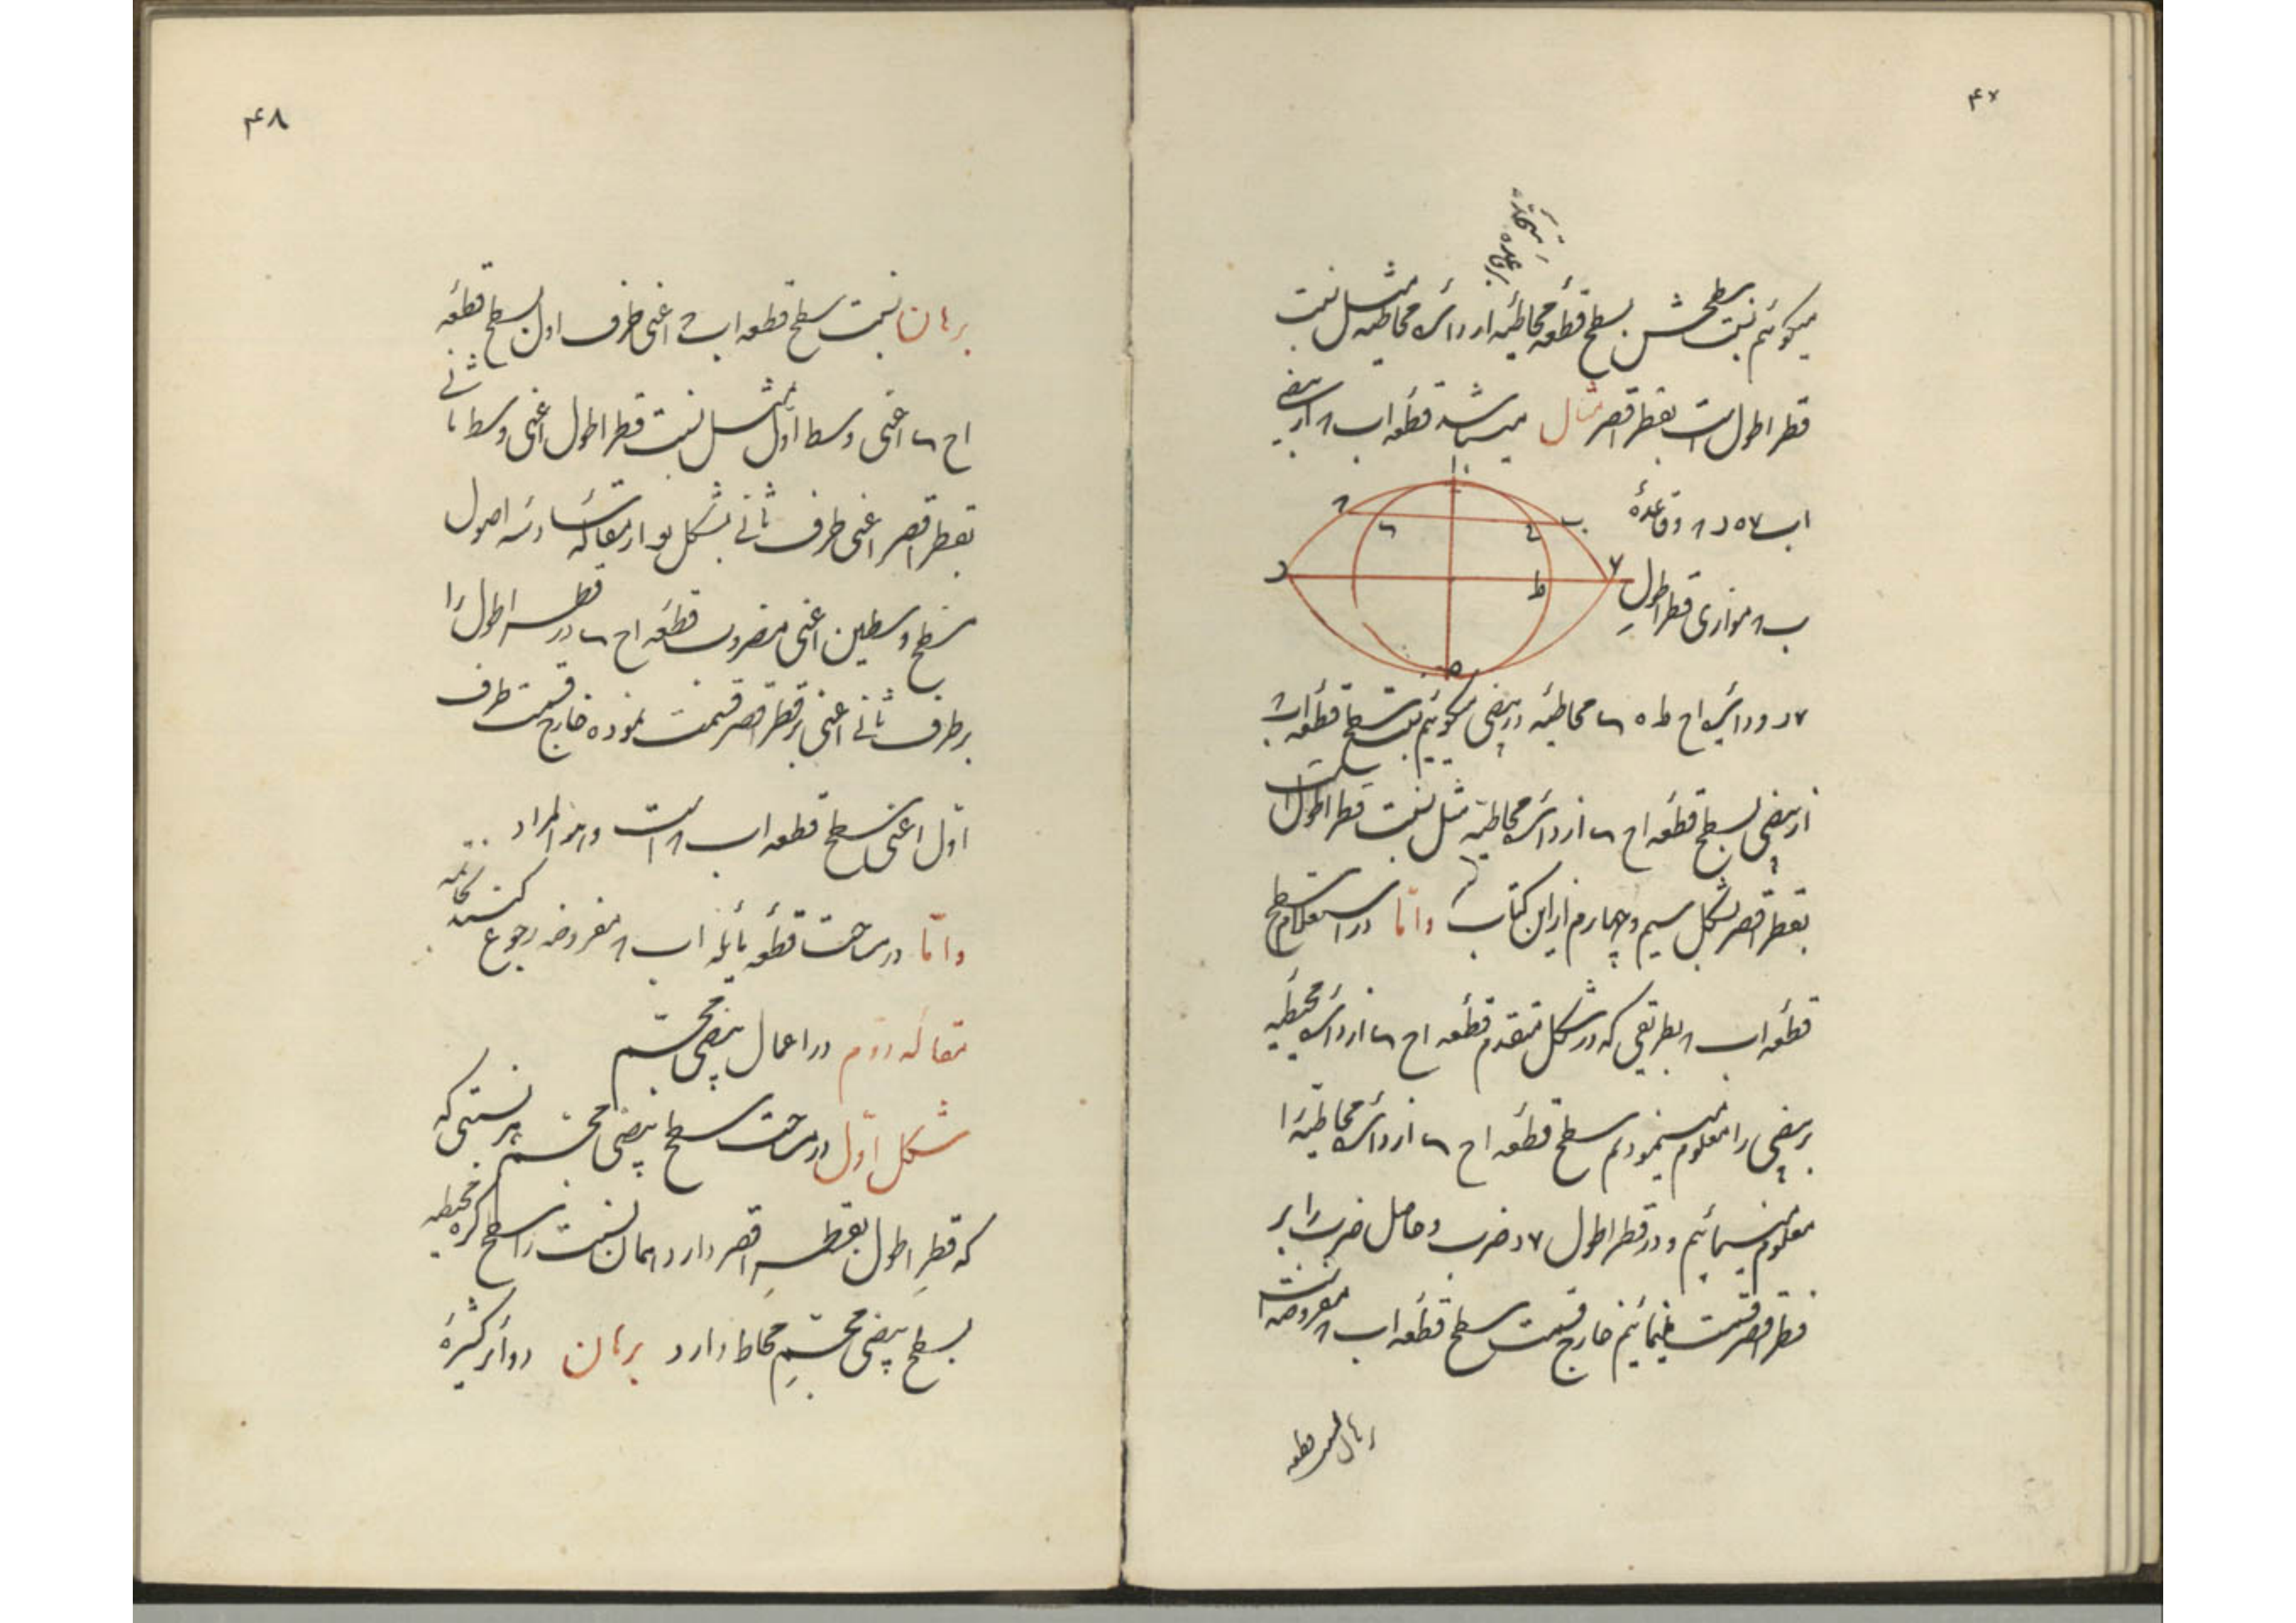 ۴۷
بر قاعده متحده
میکوئیم نسبت سطحش بسطح قطعه محاطیه از دائره محاطیه مثل نسبت
قطر اطول است بقطر اقصر مثال میباشد قطعه ا ب ۸ از بیضی
ا ب ۷ ه د ۸ و قاعدهٔ
ب ۸ موازی قطر اطول
۷ د و دائره ا ح ط ه محاطیه در بیضی میکوئیم نسبت سطح قطعه ا ب ۸
از بیضی بسطح قطعه ا ح از دائره محاطیه مثل نسبت قطر اطول است
بقطر اقصر بشکل سیم و چهارم از این کتاب و اما در استعلام سطح
قطعه ا ب ۸ بطریقی که در شکل متقدم قطعه ا ح از دائره محیطیه
بر بیضی را معلوم مینمودیم سطح قطعه ا ح از دائره محاطیه را
معلوم مینمائیم و در قطر اطول ۷ د ضرب و حاصل ضرب را بر
قطر اقصر قسمت مینمائیم خارج قسمت سطح قطعه ا ب ۸ مفروضه است
برهان نسبت قطعه
۴۸
برهان نسبت سطح قطعه ا ب ۸ اعنی طرف اول بسطح قطعه
ا ح اعنی وسط اول مثل نسبت قطر اطول اعنی وسط ثانی
بقطر اقصر اعنی طرف ثانی بشکل یو از مقاله سادسه اصول
سطح وسطین اعنی مضروب قطعه ا ح در قطر اطول را
بر طرف ثانی اعنی بر قطر اقصر قسمت نموده خارج قسمت طرف
اول اعنی سطح قطعه ا ب ۸ است و هو المراد
و اما در مساحت قطعه مایله ا ب ۸ مفروضه رجوع کنید بخاتمه
مقاله دوم در اعمال بیضی مجسم
شکل اول در مساحت سطح بیضی مجسم هر نسبتی که
که قطر اطول بقطر اقصر دارد همان نسبت را سطح کره محیطیه
بسطح بیضی مجسم محاط دارد برهان دوائر کثیرهٔ